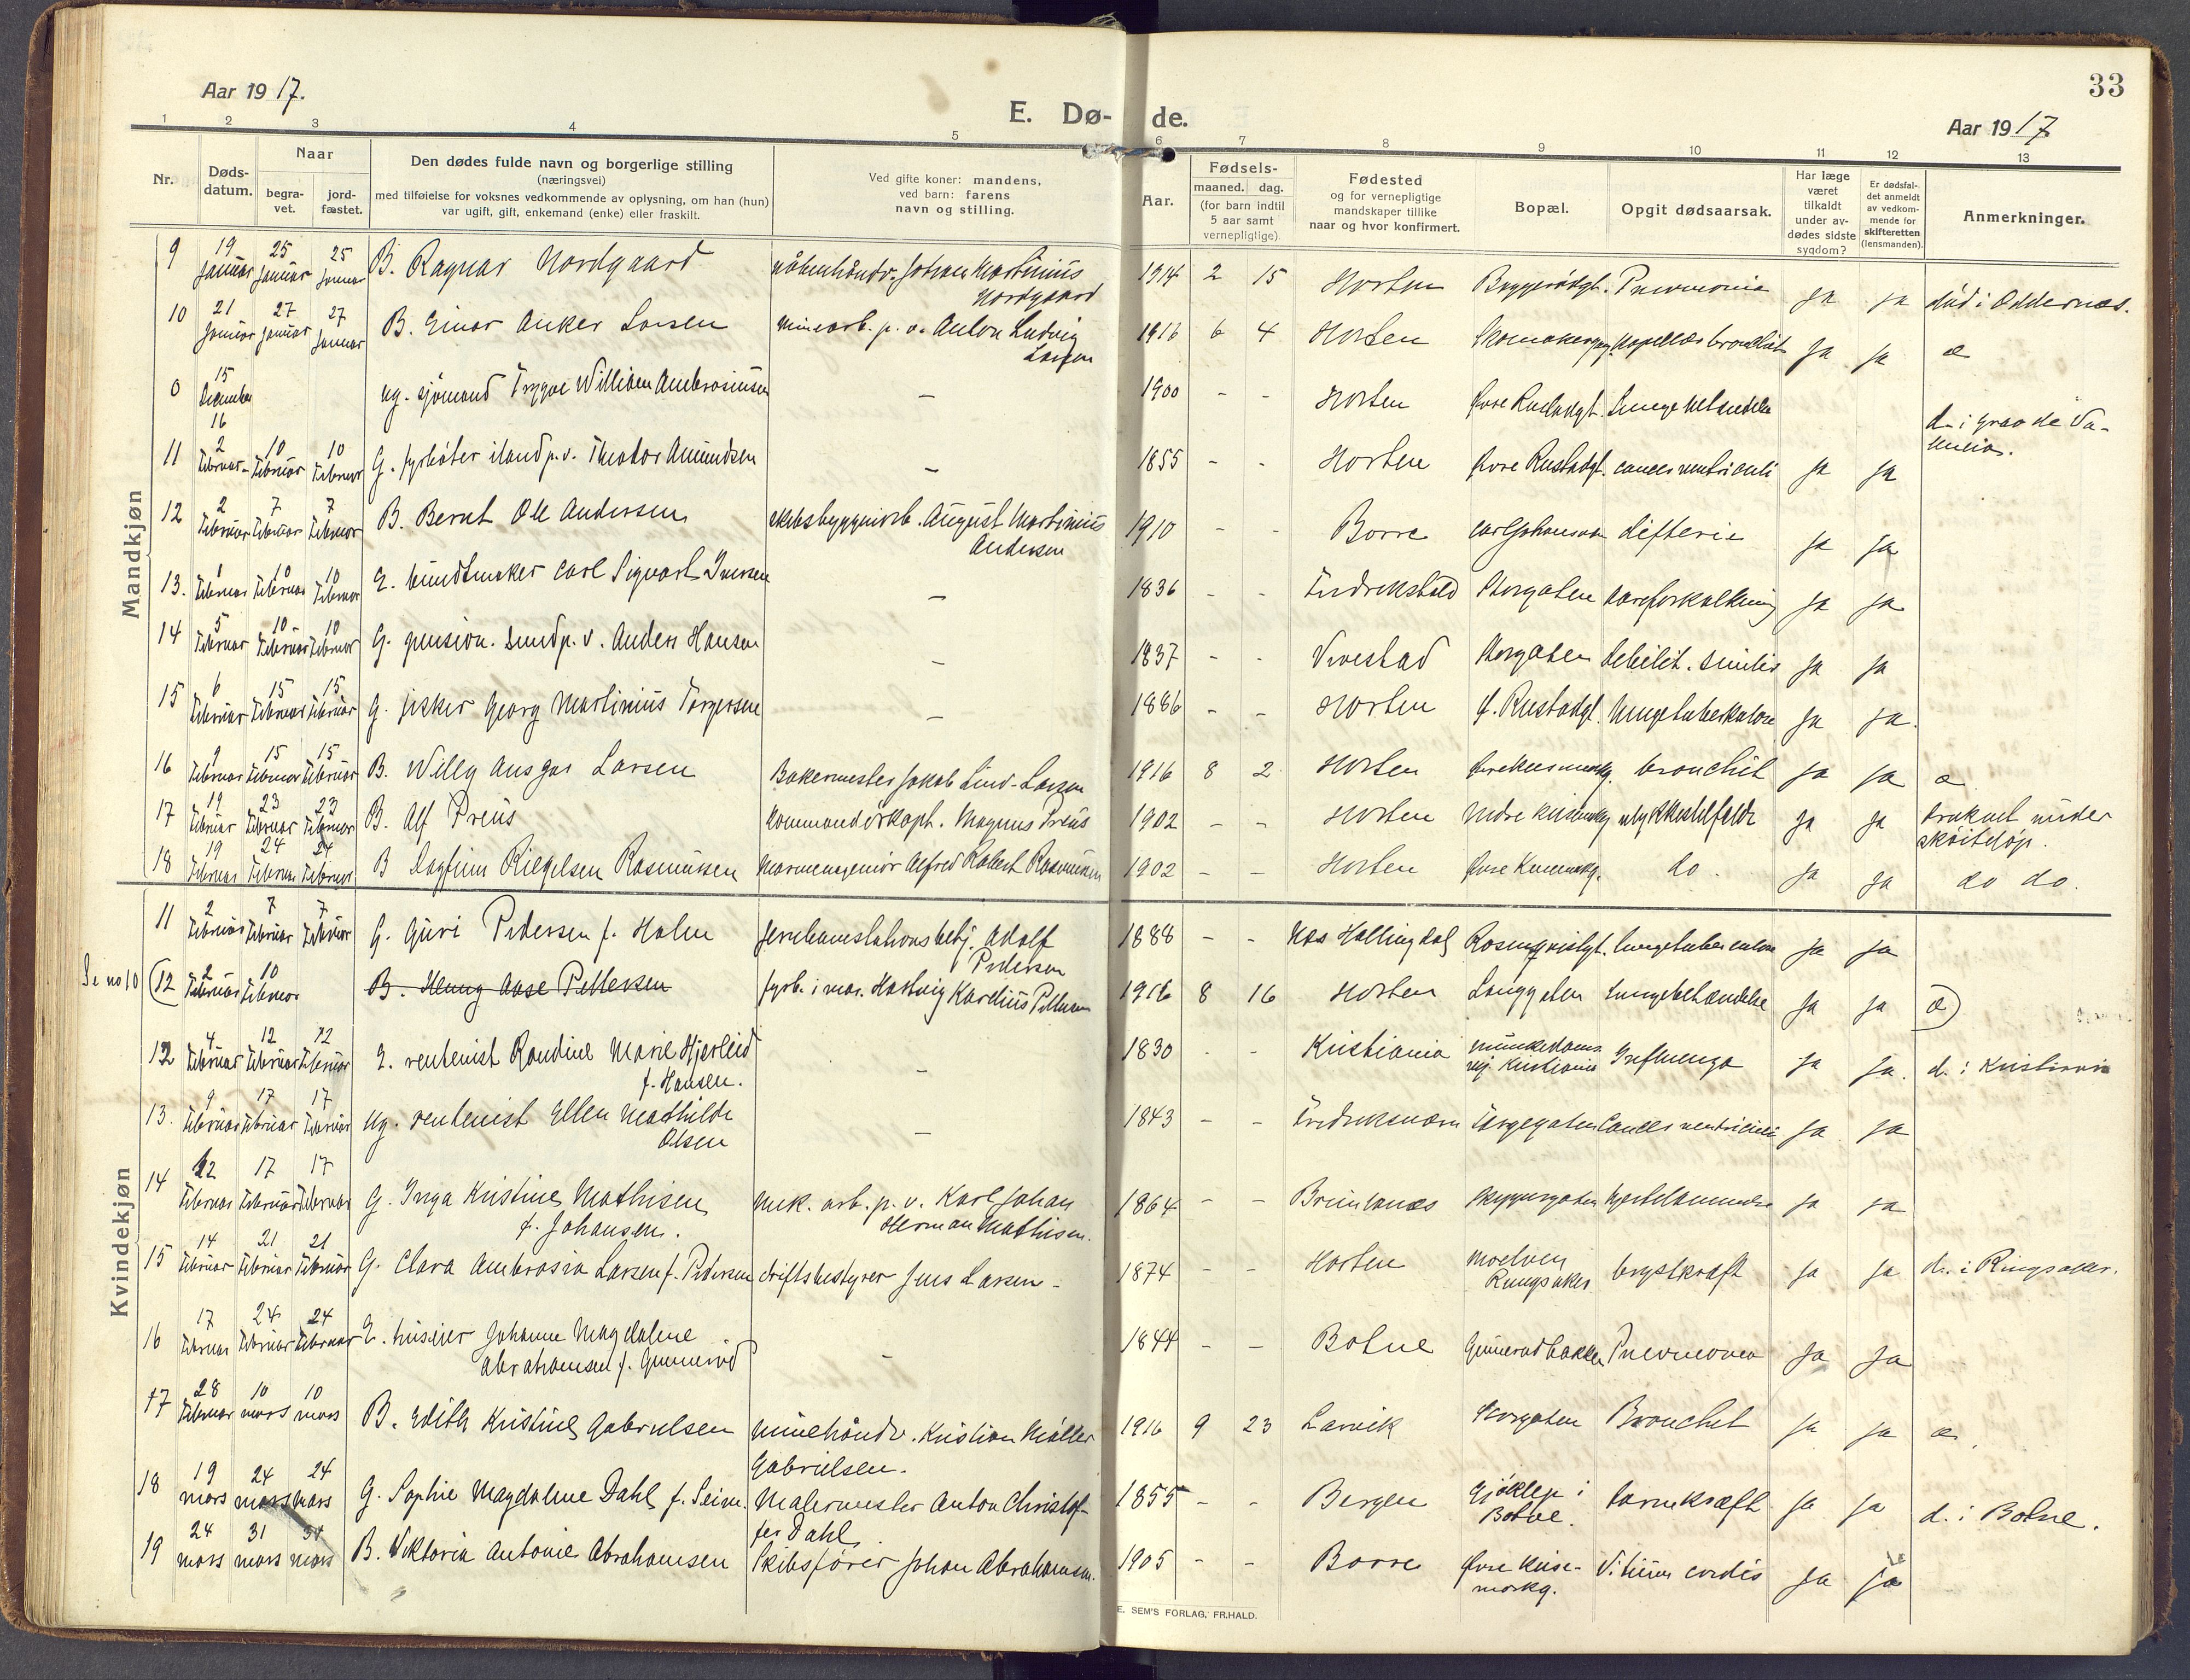 Aar 1917.
E. Dø-
de.
33
Aar 1917
1 2 3 4 5 6 7 8 9 10 11 12 13
Nr.
Døds-
datum.
Naar
begra-
vet.
jord-
fæstet.
Den dødes fulde navn og borgerlige stilling
(næringsvei)
med tilføielse for voksnes vedkommende av oplysning, om han (hun)
var ugift, gift, enkemand (enke) eller fraskilt.
Ved gifte koner: mandens,
ved barn: farens
navn og stilling.
Aar.
Fødsels-
maaned. dag.
(for barn indtil
5 aar samt
vernepligtige).
Fødested
og for vernepligtige
mandskaper tillike
naar og hvor konfirmert.
Bopæl.
Opgit dødsaarsak.
Har læge
været
tilkaldt
under av-
dødes sidste
sygdom?
Er dødsfal-
det anmeldt
av vedkom-
mende for
skifteretten
(lensmanden).
Anmerkninger.
Mandkjøn
9 19 Januar 25 Januar 25 Januar B. Ragnar Nordgaard Johan Martinius Nordgaard 1914 2 15 Horten Pneumonia Ja Ja
10 21 Januar 27 Januar 27 Januar B. Einar Anker Larsen minearb. p. v. Anton Ludvig Larsen 1916 6 4 Horten Ja Ja æ
0 15 December 16 ug. sjömand Trygve William Ambrosiussen — 1900 - - Horten Øvre Rustadgt.
11 2 Februar 10 Februar 10 Februar G. fyrbøter Theodor Amundsen — 1855 - - Horten Øvre Rustadgt. cancer ventriculi Ja Ja
12 2 Februar 7 Februar 7 Februar B. Bernt Ole Andersen skibsbyggeriarb. August Martinius Andersen 1910 - - Borre difteri Ja Ja
13. 1 Februar 10 Februar 10 Februar E. bundtmaker Carl Sigvart Iversen — 1836 - - Fredrikstad Storgaten aareforkalkning Ja Ja
14 5 Februar 10 Februar 10 Februar G. pension. Anders Hansen — 1837 - - Vivestad Storgaten debilit. senilis Ja Ja
15 6 Februar 15 Februar 15 Februar G. fisker Georg Martinius Torgersen — 1886 - - Horten Ø. Rustadgt. lungetuberkulose Ja Ja.
16 9 Februar 15 Februar 15 Februar B. Willy Ansgar Larsen Bakermester Jakob Lind-Larsen 1916 8 2 Horten bronchit Ja Ja æ
17 19 Februar 23 Februar 23 Februar B. Alf Preus Kommandörkapt. Magnus Preus 1902 - - Horten ulykkestilfælde Ja Ja druknet under skøiteløp.
18 19 Februar 24 Februar 24 Februar B Dagfinn Riegelsen Rasmussen Marineingeniør Alfred Robert Rasmussen 1902 - - Horten do. Ja Ja do do.
Kvindekjøn
11 2 Februar 7 Februar 7 Februar G. Guri Pedersen f. Holm jernbanestationsbetj. Adolf Pedersen 1888 - - Næs Hallingdal Rosenqvistgt. Ja Ja
Se no 10 (12 2 Februar 10 Februar B. Henny Aase Pettersen fyrb. i mar. Hartvig Karelius Pettersen 1916 8 16 Horten Langgaten Lungebetændelse Ja Ja æ)
12 4 Februar 12 Februar 12 Februar E. rentenist Randine Marie Hjerleid f. Hansen. — 1830 - - Kristiania Munkedamsvej. Kristiania Influenza Ja Ja. d. i Kristiania
13. 9 Februar 17 Februar 17 Februar ug. rentenist Ellen Mathilde Olsen — 1843 - - Fredriksværn Cancer ventriculi Ja Ja
14 12 Februar 17 Februar 17 Februar G. Inga Kristine Mathisen f. Johansen. mek. arb. p. v. Karl Johan Herman Mathisen. 1864 - - Brunlanæs Ja Ja
15 14 Februar 21 Februar 21 Februar G. Clara Ambrosia Larsen f. Pedersen driftsbestyrer Jens Larsen - 1874 - - Horten Moelven Ringsaker brystkræft Ja Ja d. i Ringsaker.
16 17 Februar 24 Februar 24 Februar E. huseier Johanne Magdalene Abrahamsen f. Gunnerød — 1844 - - Botne Gunnerødbakken Pneumonia Ja Ja
17 28 Februar 10 mars 10 mars B. Edith Kristine Gabrielsen minehåndv. Kristian Møller Gabrielsen. 1916 9 23 Larvik Storgaten Bronchit Ja Ja æ.
18 19 mars 24 mars 24 mars G. Sophie Magdalene Dahl f. Seim. Malermester Anton Christoffer Dahl 1855 - - Bergen Gjøklep i Botne. tarmkræft Ja Ja d. i Botne.
19 24 mars 31 mars 31 mars B. Viktoria Antonie Abrahamsen Skibsfører Johan Abrahamsen. 1905 - - Borre Vitium cordis Ja Ja
E. SEM'S FORLAG, FR.HALD.